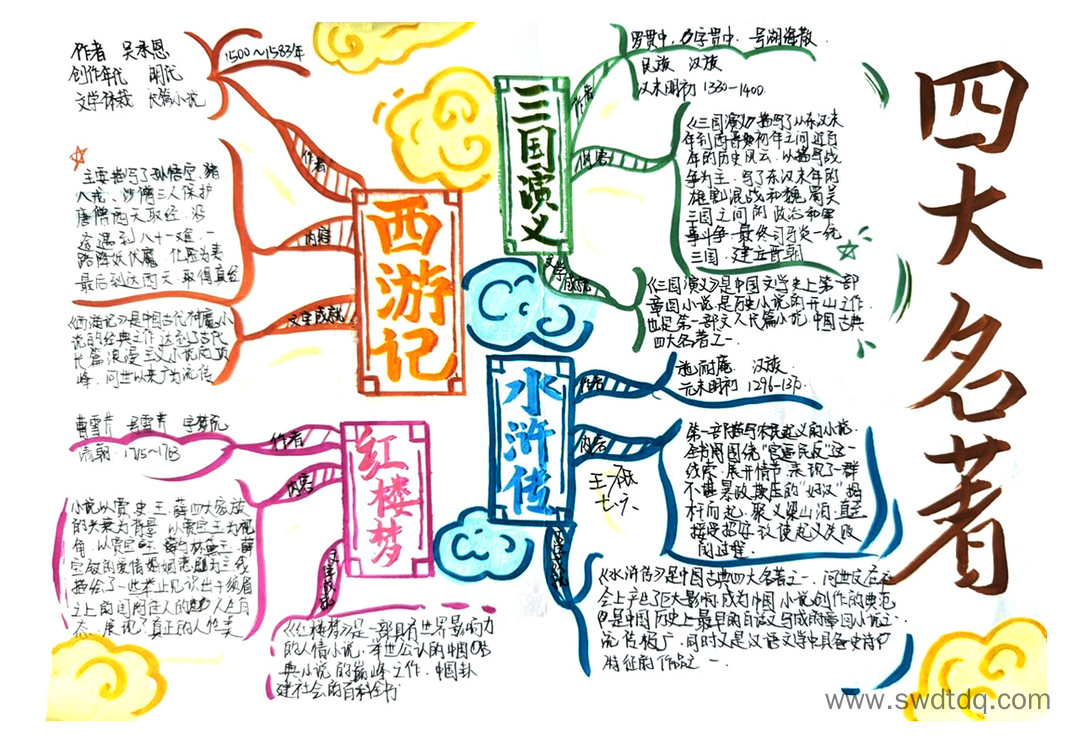 四大名著
西游记
作者
作者 吴承恩
1500~1583年
创作年代 明代
文学体裁 长篇小说
内容
主要描写了孙悟空、猪
八戒、沙僧三人保护
唐僧西天取经、沿
途遇到八十一难,一
路降妖伏魔 化险为夷
最后到达西天、取得真经
文学成就
《西游记》是中国古代神魔小
说的经典工作 达到了古代
长篇浪漫主义小说的顶
峰,问世以来广为流传
三国演义
作者
罗贯中,名字贯中,号湖海散
民族 汉族
以末明初 1330—1400
内容
《三国演义》描写了从东汉末
年到西晋初年之间近百
年的历史风云,以描写战
争为主,写了东汉末年的
雄割混战和魏 蜀 吴
三国之间的政治和军
事斗争 最终司马炎一统
三国,建立晋朝
文学成就
《三国演义》是中国文学史上第一部
章回小说,是历史小说的开山之作,
也是第一部文人长篇小说,中国古典
四大名著之一
水浒传
作者
施耐庵 汉族
元末明初 1296—137
内容
第一部描写农民起义的小说
全书围围绕“官逼民反”这一
线索,展开情节,表现了一群
不甚暴政欺压的“好汉”揭
杆而起,聚义梁山泊,直至
接受招安 使起义失败
的过程.
王一斌
七、六
《水浒传》是中国古典四大名著之一,问世反在社
会上产生了巨大影响 成为中国小说创作的典范
是中国历史上最早的白话文写成的章回小说之一
流传极广,同时又是汉语文学中具备史诗
特征的作品之一.
红楼梦
作者
曹雪芹 名雪芹 字梦阮
清朝 1715~1763
内容
小说以贾 史 王 薛四大家族
的兴衰为背景 以贾宝玉为视
宝钗的爱情婚姻悲剧为主线
描绘了一些举止见识出于须眉
态、展现了真正的人性美
《红楼梦》是一部具有世界影响力
的人情小说,举世公认的中国古
典小说的巅峰之作,中国封
建社会的百科全书
www.swdtdq.com